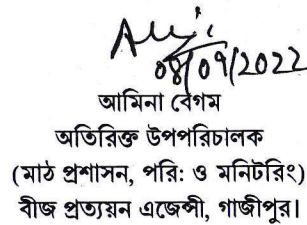 08/09/2022
আমিনা বেগম
অতিরিক্ত উপপরিচালক
(মাঠ প্রশাসন, পরি: ও মনিটরিং)
বীজ প্রত্যয়ন এজেন্সী, গাজীপুর।